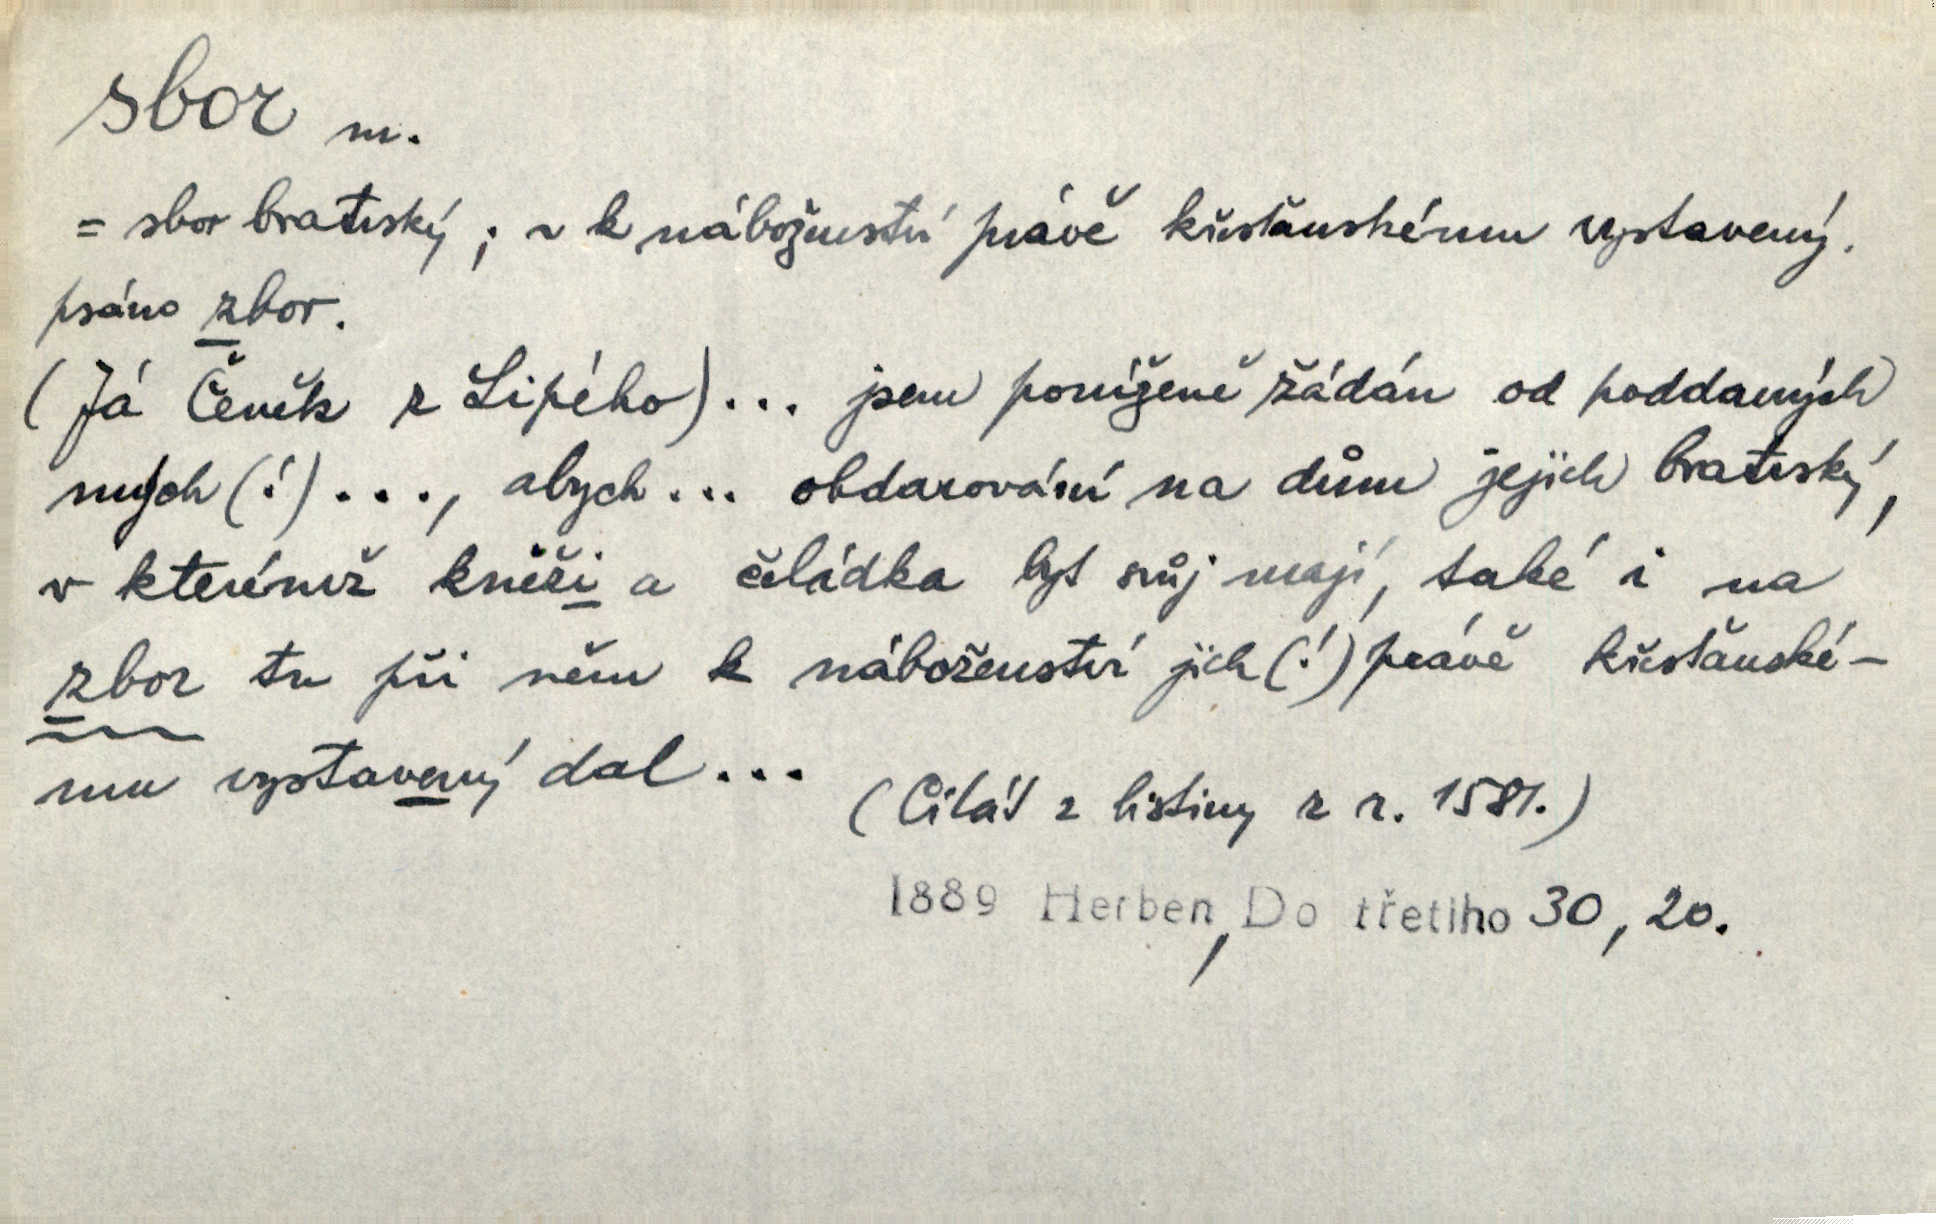 sbor m.
= sbor bratrský; ~ k náboženství právě křesťanskému vystavený.
psáno zbor.
(Já Čeněk z Lipého)... jsem poníženě žádán od poddaných
mých (!) ..., abych... obdarování na dům jejich bratrský,
v kterémž kněži a čeládka byt svůj mají, také i na
zbor tu při něm k náboženství jich (!) právě křesťanské-
mu vystavený dal...
(Citát z listiny z r. 1581.)
1889 Herben, Do třetího 30, 20.